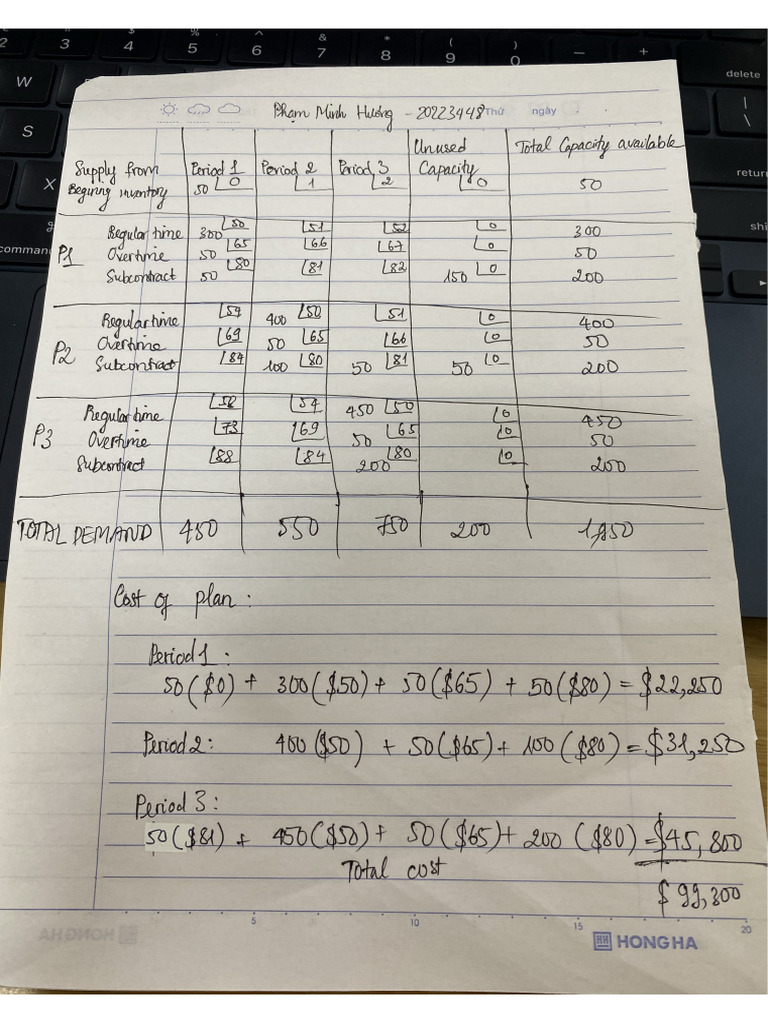 Phạm Minh Hương - 20223448 Thứ ngày
Supply from Period 1 Period 2 Period 3 Unused Capacity Total Capacity available
Begining inventory 50 0 1 2 0 50
P1 Regular time 300 50 51 52 0 300
Overtime 50 65 66 67 0 50
Subcontract 50 80 81 82 150 0 200
P2 Regular time 54 400 50 51 0 400
Overtime 69 50 65 66 0 50
Subcontract 84 100 80 50 81 50 0 200
P3 Regular time 58 54 450 50 0 450
Overtime 73 69 50 65 0 50
Subcontract 88 84 200 80 0 200
TOTAL DEMAND 450 550 750 200 1,950
Cost of plan:
Period 1:
50($0) + 300($50) + 50($65) + 50($80) = $22,250
Period 2: 400($50) + 50($65) + 100($80) = $31,250
Period 3:
50($81) + 450($50) + 50($65) + 200($80) = $45,800
Total cost $99,300
5 10 15 20
HONG HA